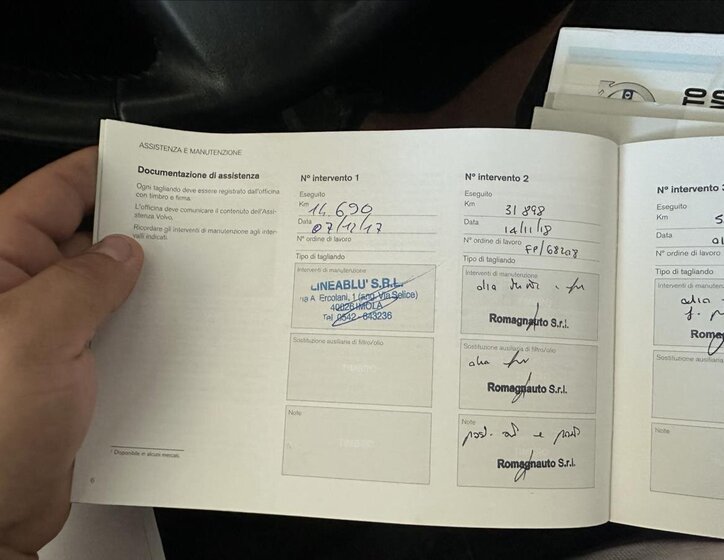 ASSISTENZA E MANUTENZIONE
Documentazione di assistenza
Ogni tagliando deve essere registrato dall'officina
con timbro e firma.
L'officina deve comunicare il contenuto dell'Assi-
stenza Volvo.
Ricordare gli interventi di manutenzione agli inter-
valli indicati.
1 Disponibile in alcuni mercati.
6
N° intervento 1
Eseguito
Km 14.690
Data 07/12/17
N° ordine di lavoro
Tipo di tagliando
Interventi di manutenzione
LINEABLU' S.R.L.
Via A. Ercolani, 1 (ang. Via Selice)
40026 IMOLA
Tel. 0542-643236
Sostituzione ausiliaria di filtro/olio
TIMBRO
Note
TIMBRO
N° intervento 2
Eseguito
Km 31898
Data 14/11/18
N° ordine di lavoro
Tipo di tagliando
Interventi di manutenzione
Romagnauto S.r.l.
Sostituzione ausiliaria di filtro/olio
Romagnauto S.r.l.
Note
Romagnauto S.r.l.
N° intervento 3
Eseguito
Km
Data
N° ordine di lavoro
Tipo di tagliando
Interventi di
Sostituzione ausiliaria
Note